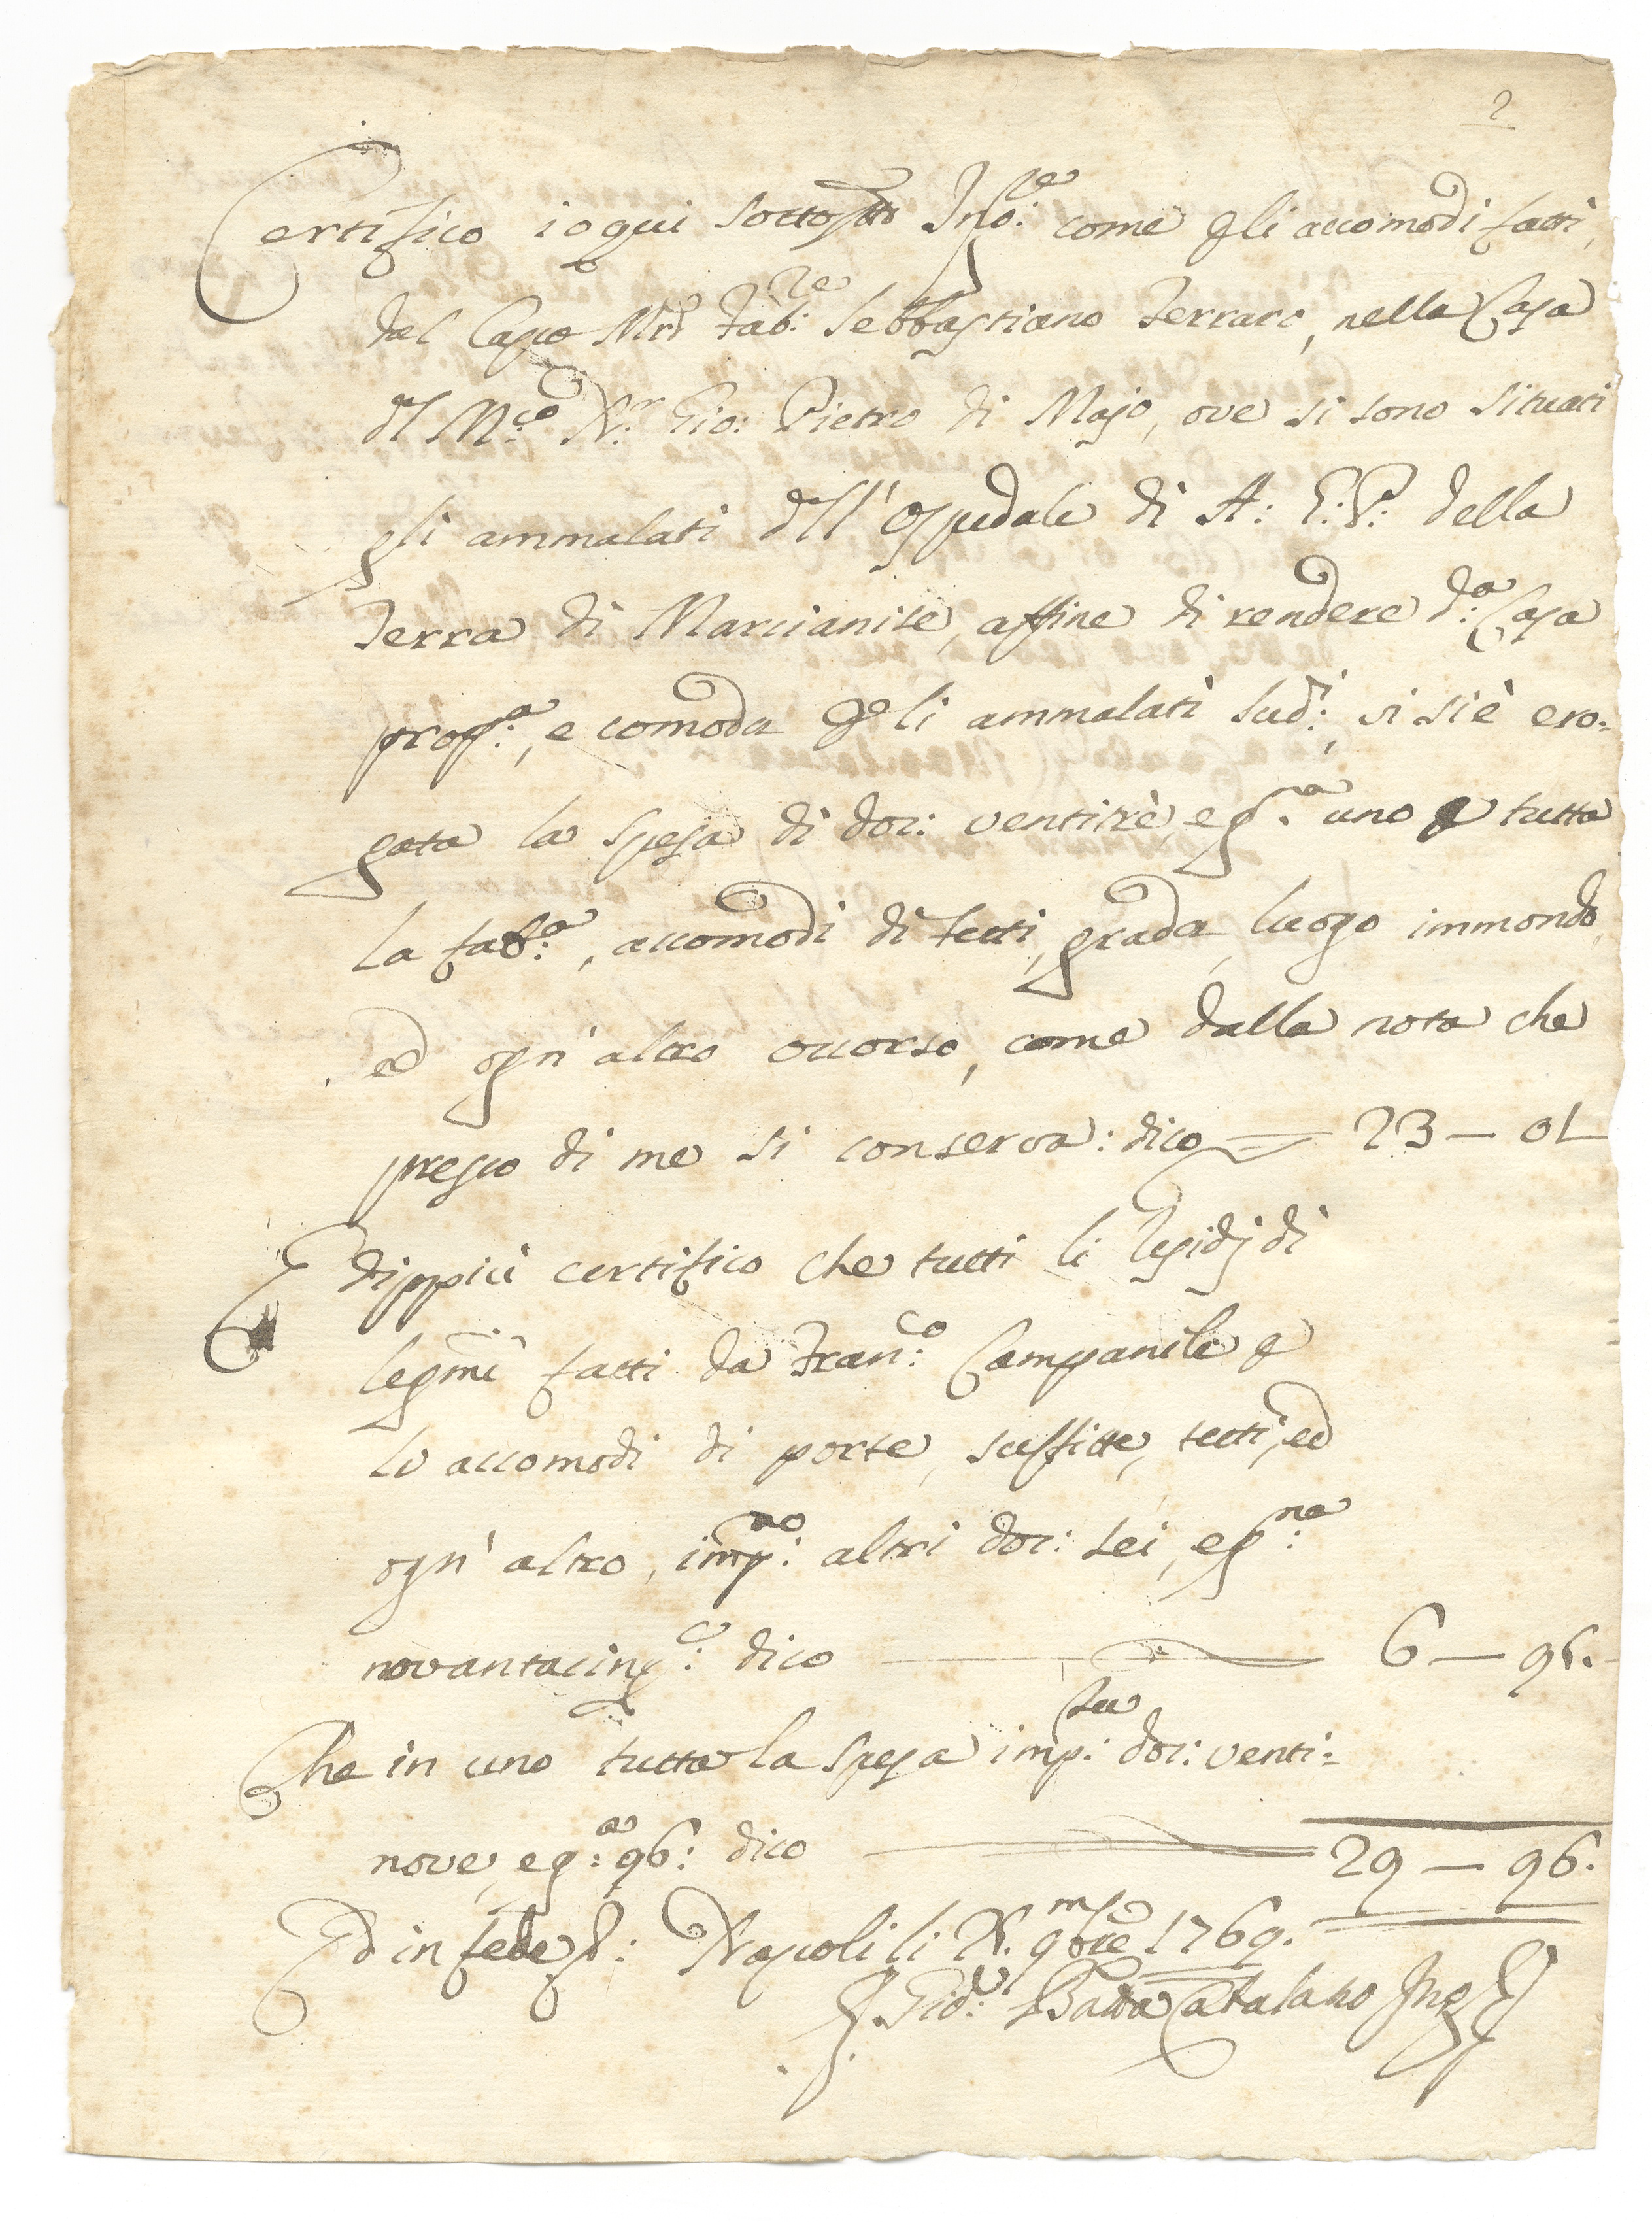 2
Certifico io qui sottoštto Ing:re come gli accomodi fatti,
dal Capo Mro Fab:re Sebbastiano Ferraro, nella Casa
del M:co N:r Gio: Pietro di Majo, ove si sono situati
gli ammalati dell'Ospedale di A: G: P: della
Terra di Marcianise, affine di rendere d:a Casa
prop:a, e comoda per li ammalati sud:i, vi si è ero=
gata la spesa di doc: ventitrè, e g:na uno per tutta
la fab:a, accomodi di tetti, grada, luogo immondo,
ed ogn'altro occorso, come dalla nota che
presso di me si conserva: dico = 23 – 01
E dippiù certifico che tutti li
legmi fatti da Fran:co Campanile per
li accomodi di porte, suffitte, tetti, ed
ogn'altro, imp:no altri doc: sei, e g:na
novantacinq:e dico — 6 — 95.
Che in uno tutta la spesa imp:ta doc: venti=
nove, e g:a 96: dico = 29 — 96.
Ed in fede &: Napoli li 9bre 1769.
Gio: Batta Catalano Ing:re